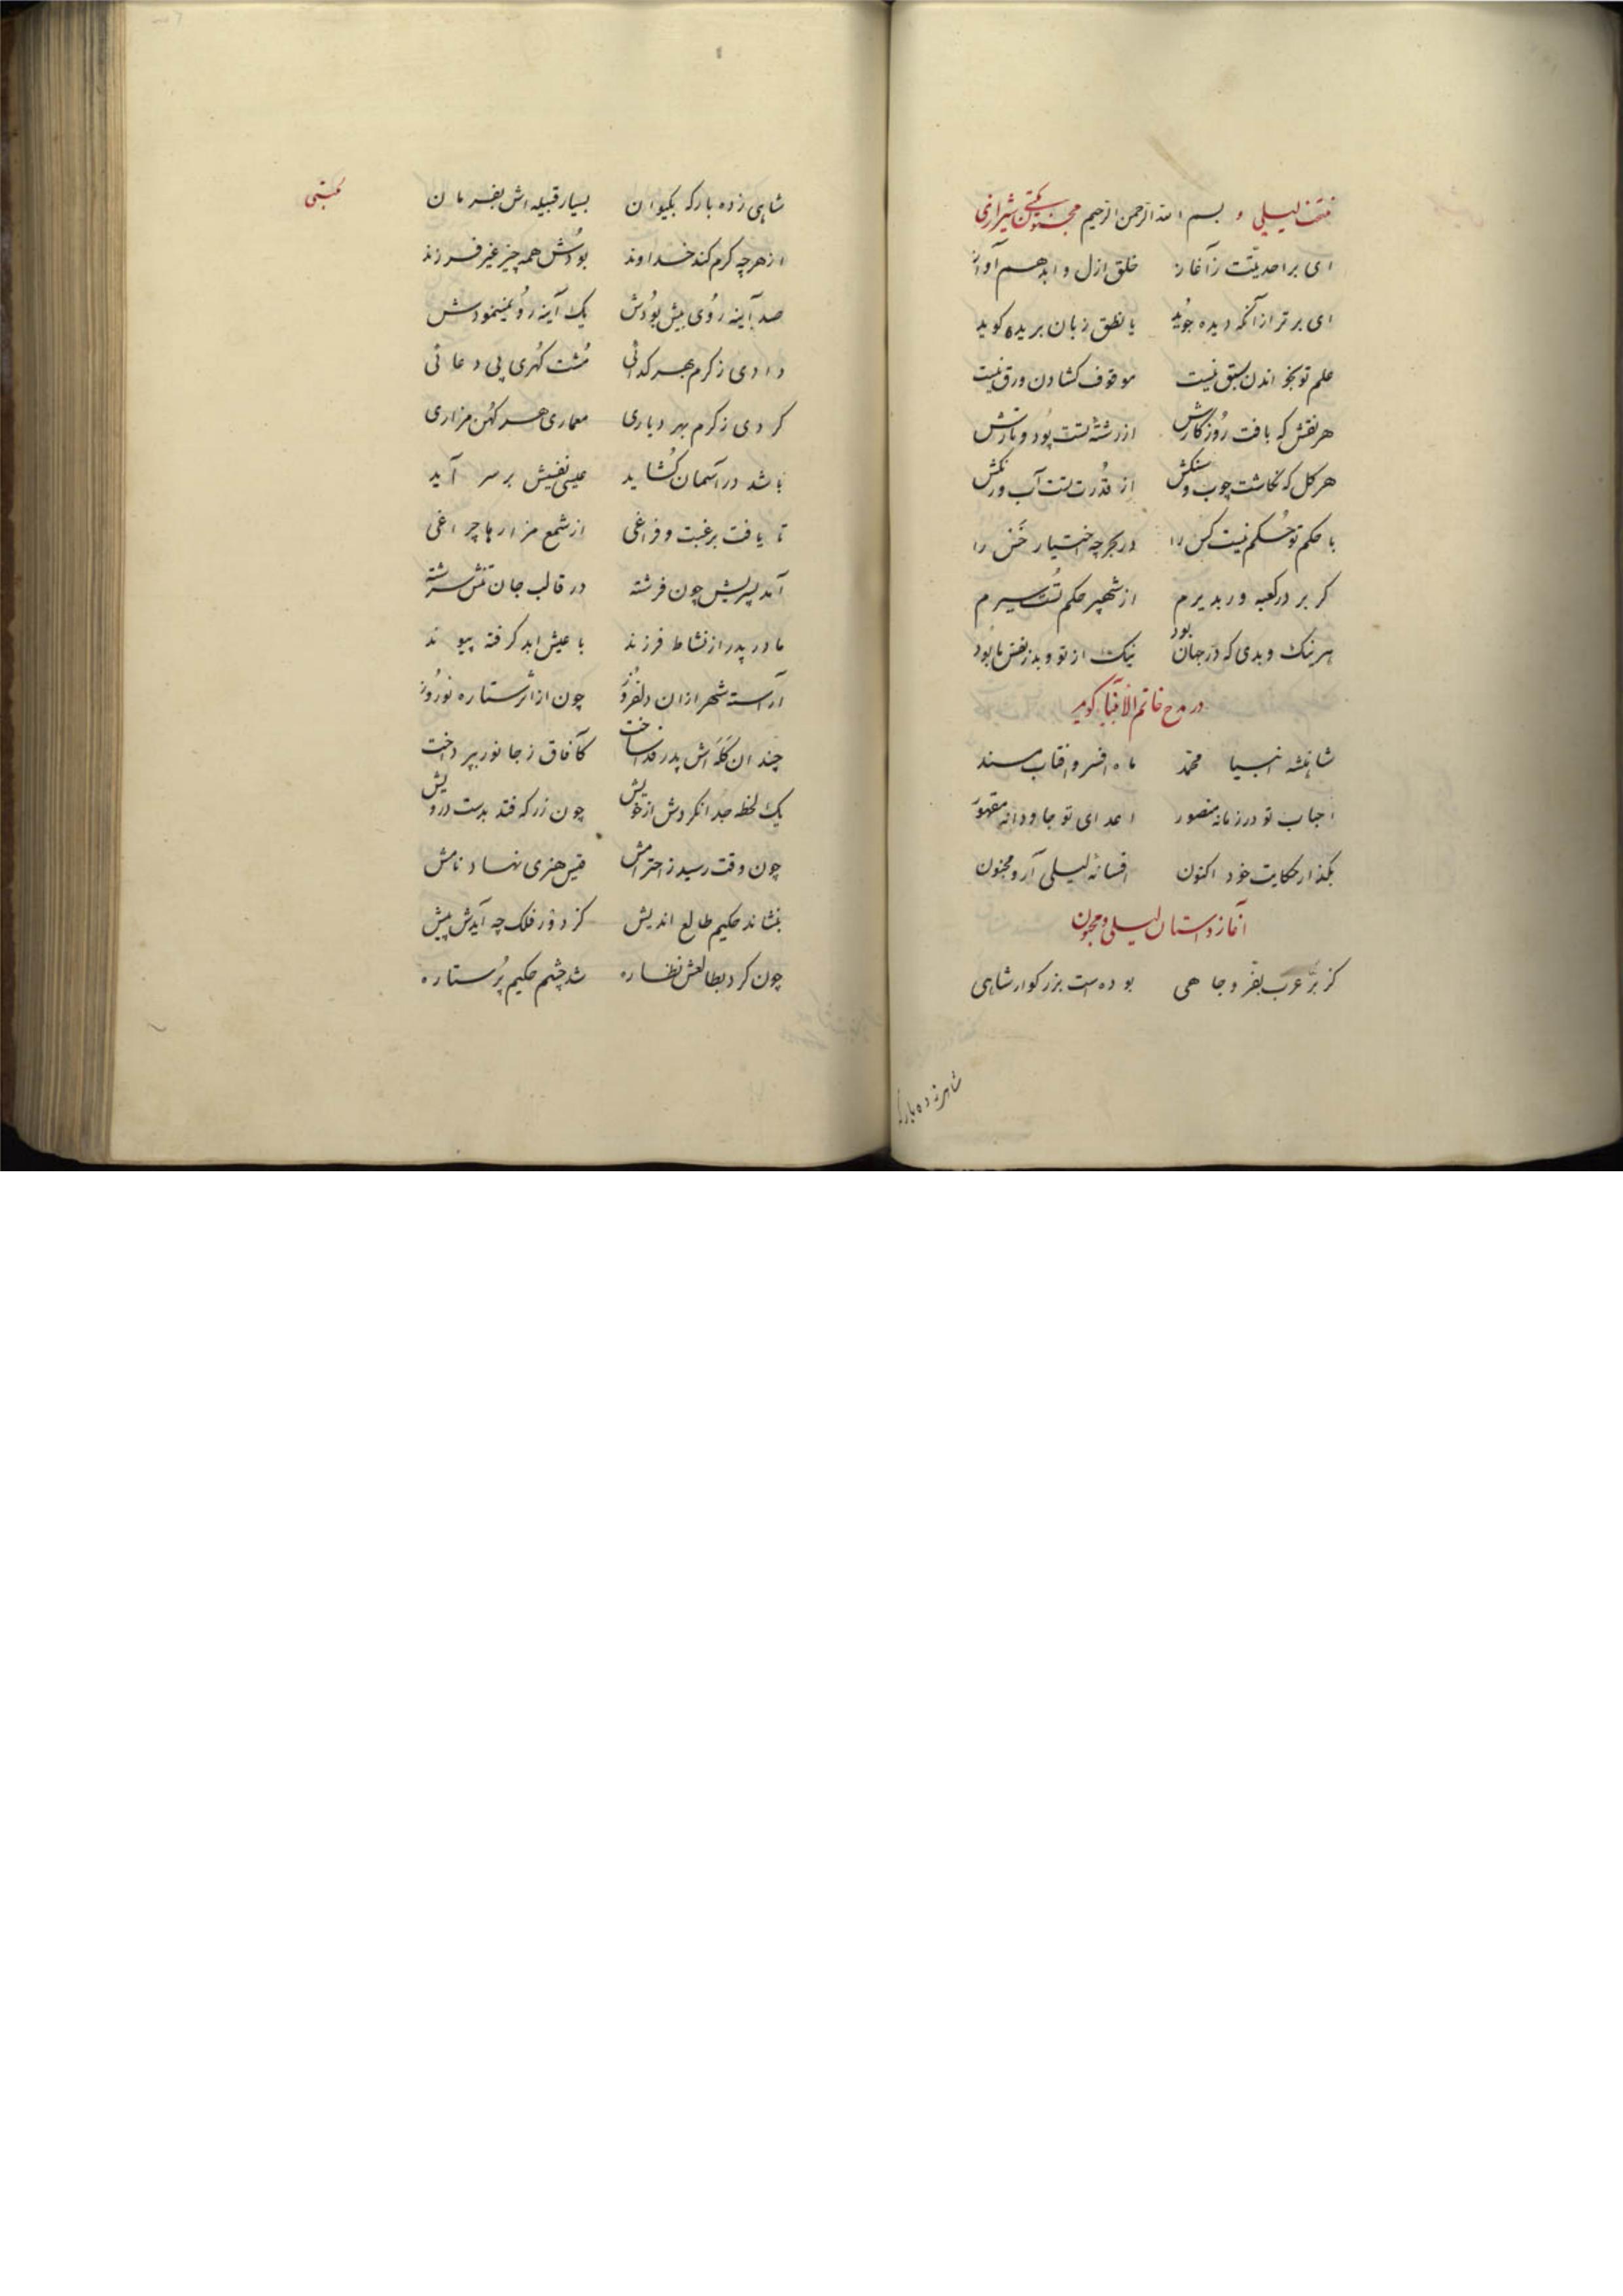 منتخب لیلی و بسم الله الرحمن الرحیم مجنون مکتبی شیرازی
ای بر احدیتت ز آغاز خلق ازل و ابد هم آواز
ای برتر از آنکه دیده جوید یا نطق زبان بریده کوید
علم تو بخواندن سبق نیست موقوف کشادن ورق نیست
هر نقش که بافت روزکارش از رشته تست پود و تارش
هر کل که نکاشت چوب و سنکش از قدرت تست آب و رنکش
با حکم تو حکم نیست کس را در بحر چه اختیار خس را
کر بر در کعبه ور بدیرم از شهپر حکم تست سیرم
هر نیک و بدی که در جهان بود نیک از تو و بد ز نفس ما بود
در مدح خاتم الانبیا کوید
شاهنشه انبیا محمد ماه افسر و افتاب مسند
احباب تو در زمانه منصور اعدای تو جاودانه مقهور
بکذار حکایت خود اکنون افسانه لیلی آر و مجنون
آغاز داستان لیلی و مجنون
کز بر عرب بفر و جاهی بوده است بزرکوار شاهی
شاهی زده بارکه
مکتبی
شاهی زده بارکه بکیوان بسیار قبیله اش بفرمان
از هر چه کرم کند خداوند بودش همه چیز غیر فرزند
صد آینه روی بیش بودش یک آینه رو نمینمودش
دادی ز کرم بهر کدائی مشت کهری پی دعائی
کردی ز کرم بهر دیاری معماری هر کهن مزاری
باشد در آسمان کشاید عیسی نفسیش بر سر آید
تا یافت برغبت و فراغی از شمع مزارها چراغی
آمد پسریش چون فرشته در قالب جان تنش سرشته
مادر پدر از نشاط فرزند با عیش ابد کرفته پیوند
آراسته شهر ازان دلفروز چون از اثر ستاره نوروز
چندان کله اش پدر فدا ساخت کافاق ز جانور بپرداخت
یک لحظه جدا نکردش از خویش چون زر که فتد بدست درویش
چون وقت رسید ز احترامش قیس هنری نهاد نامش
بنشاند حکیم طالع اندیش کز دور فلک چه آیدش پیش
چون کرد بطالعش نظاره شد چشم حکیم پر ستاره